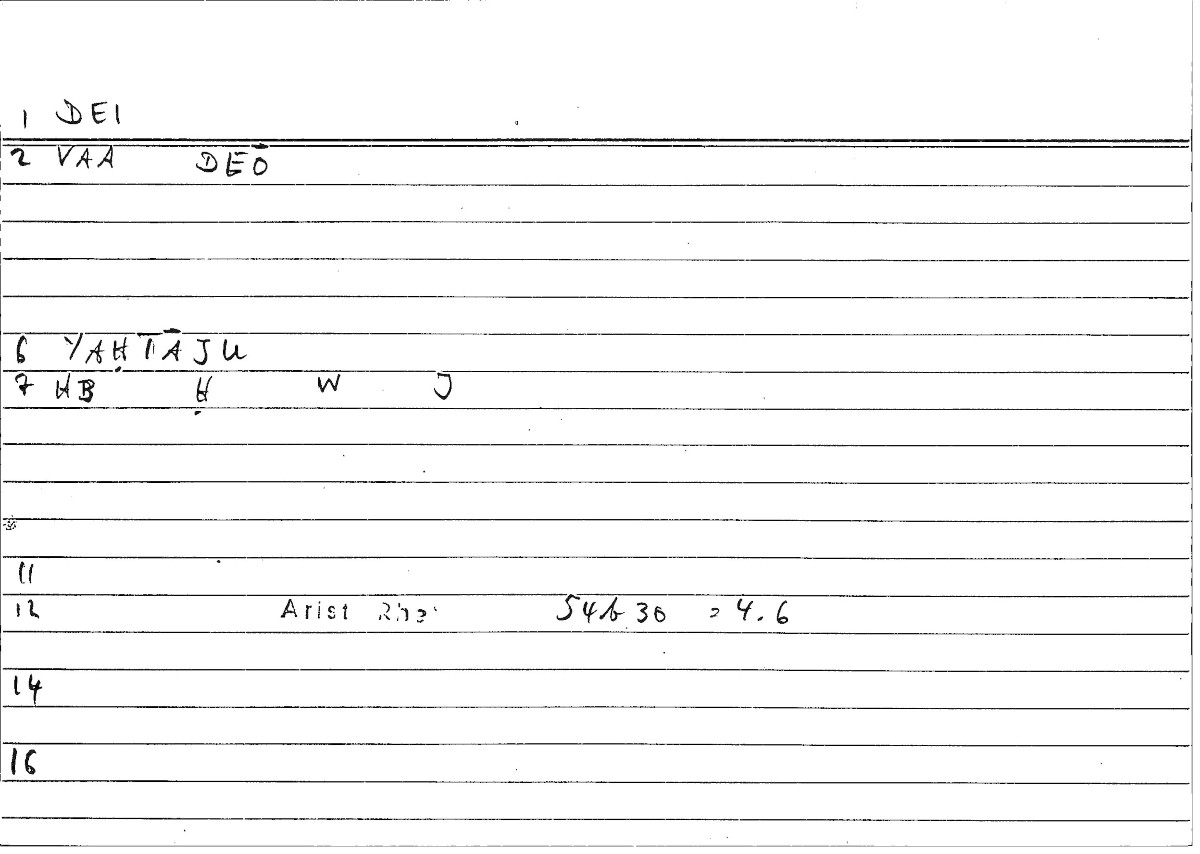 1 DEI
2 VAA DEŌ
6 YAḤTĀJU
7 HB Ḥ W J
11
12 Arist Rhe 54b30 = 4.6
14
16